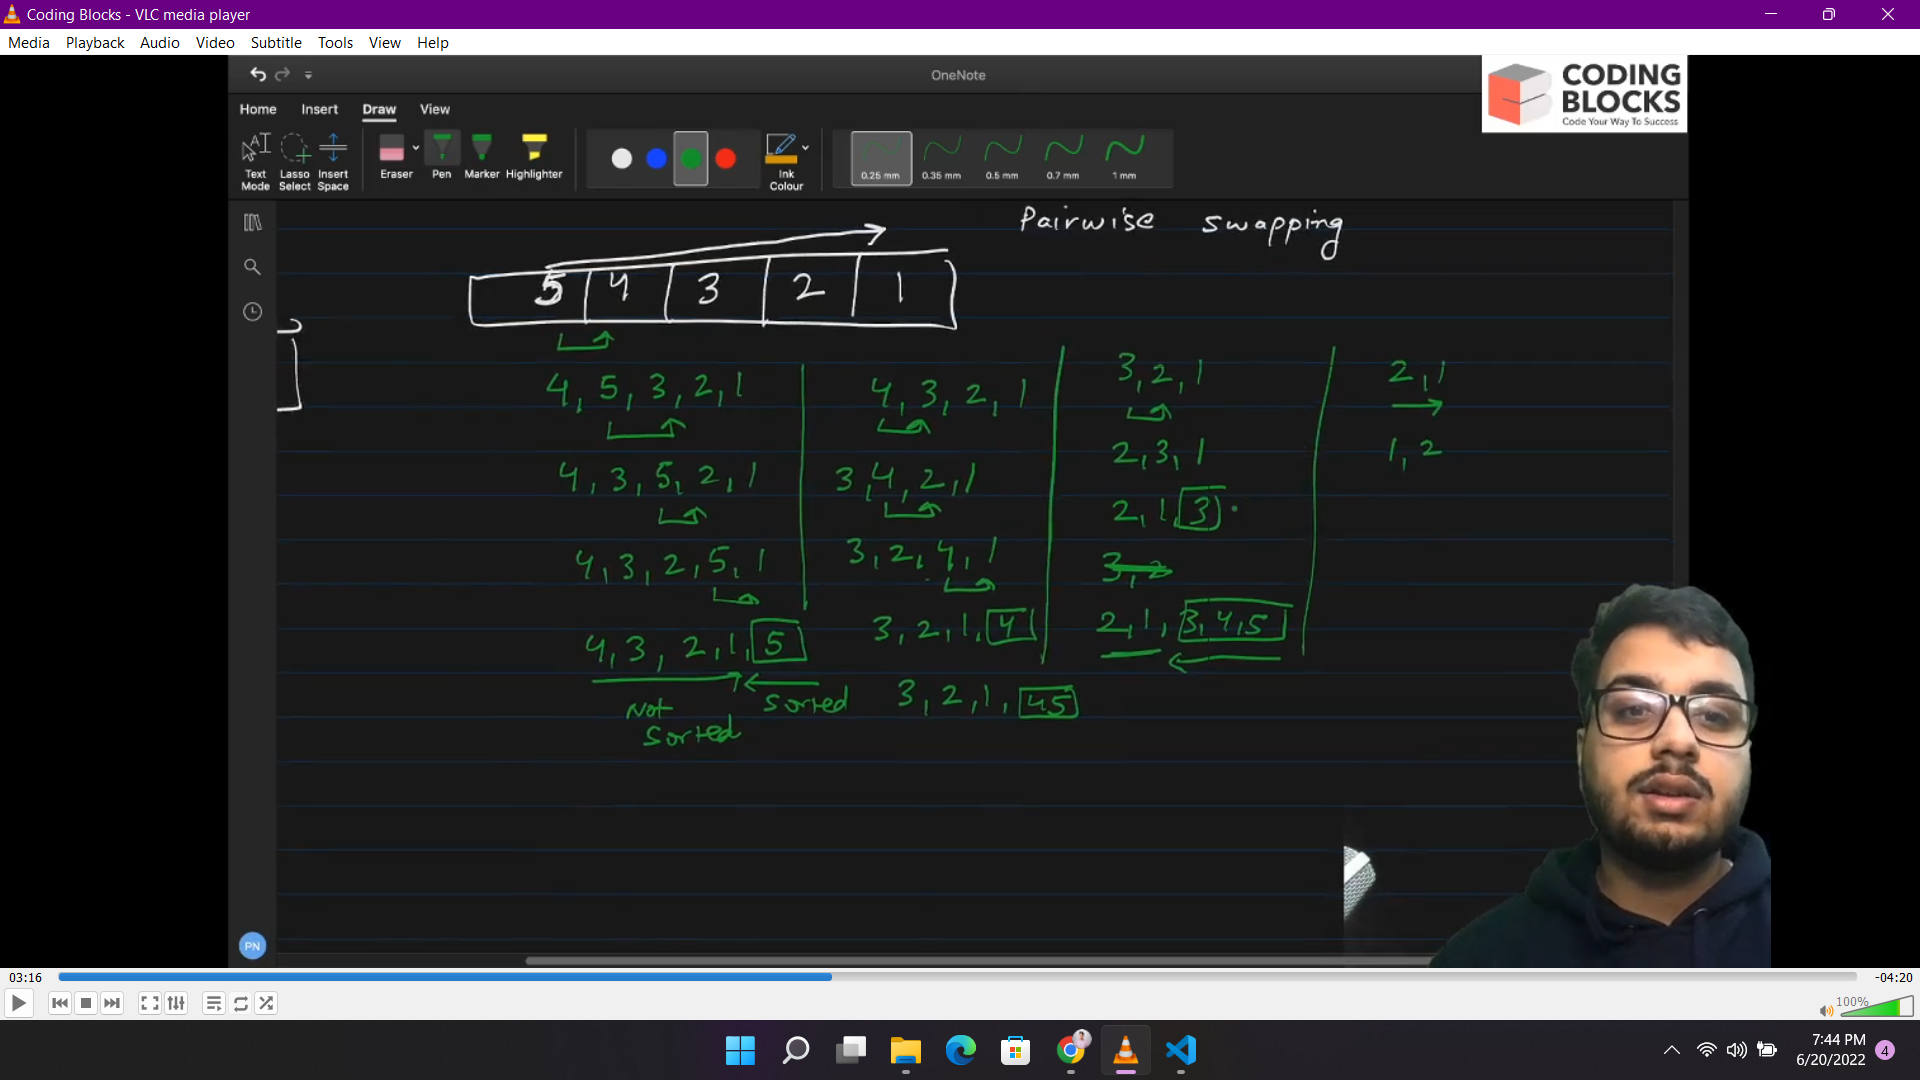 Coding Blocks - VLC media player
Media Playback Audio Video Subtitle Tools View Help
OneNote
CODING
BLOCKS
Code Your Way To Success
Home Insert Draw View
Text Mode
Lasso Select
Insert Space
Eraser
Pen
Marker
Highlighter
Ink Colour
0.25 mm 0.35 mm 0.5 mm 0.7 mm 1 mm
Pairwise swapping
5 4 3 2 1
4, 5, 3, 2, 1
4, 3, 5, 2, 1
4, 3, 2, 5, 1
4, 3, 2, 1, 5
Not Sorted
Sorted
4, 3, 2, 1
3, 4, 2, 1
3, 2, 4, 1
3, 2, 1, 4
3, 2, 1, 45
3, 2, 1
2, 3, 1
2, 1, 3
3, 2
2, 1, 3, 4, 5
2, 1
1, 2
PN
03:16
-04:20
100%
7:44 PM
6/20/2022
4